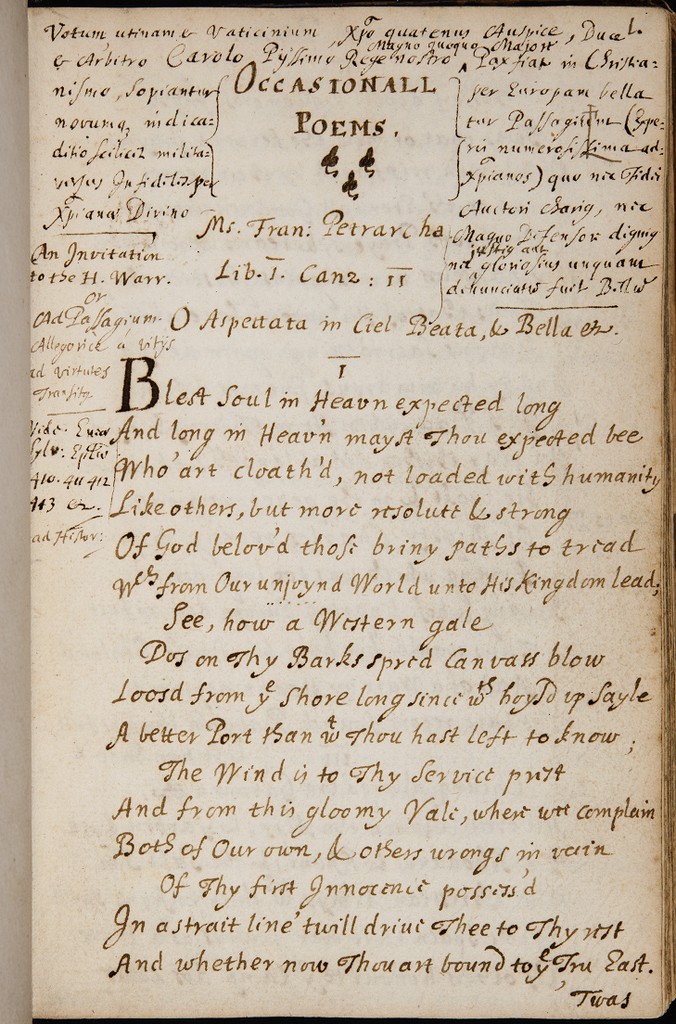 Votum utinam & Vaticinium, Xpõ quatenus Auspice, Duce l.
& Arbitro Carolo Pyssimo Rege nostro Pax fiat in Christia-
Magno quoque Majore
nismo, sopiantur
per Europam bella
novumq, indica-
tur Passagium (Expe-
ditio scilicet milita-
rii numerosissima ad-
versus Infideles per
Xpianos) quo nec Fidei
Xpianas Divino
Auctori charig, nec
Magno Defensori dignig
justig aut
nec gloriosius unquam
denunciatu fuit Bellu
OCCASIONALL
POEMS.
Ms. Fran: Petrarcha
Lib. I. Canz: II
An Invitation
to the H. Warr.
or
Ad Passagium
Allegorice a vitys
ad virtutes
Transitg
O Aspectata in Ciel Beata, & Bella &c.
I
Vide.
Sylv:
410. 411 412
413 &c.
ad Histor:
Blest Soul in Heavn expected long
And long in Heav'n mayst Thou expected bee
Who' art cloath'd, not loaded with humanity
Like others, but more resolute & strong
Of God belov'd those briny paths to tread
Wch from Our unjoynd World unto His Kingdom lead;
See, how a Western gale
Dos on Thy Barks spred Canvass blow
Loosd from ye Shore long since wth hoys'd up Sayle
A better Port than wt Thou hast left to know;
The Wind is to Thy Service prest
And from this gloomy Vale, where wee complain
Both of Our own, & others wrongs in vain
Of Thy first Innocence possess'd
In a strait line 'twill drive Thee to Thy rest
And whether now Thou art bound to ye Tru East.
'Twas